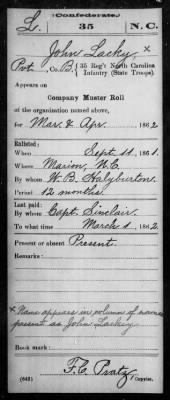 (Confederate.)
L. 35 N.C.
John Lacky x
Pvt., Co. B, 35 Reg't North Carolina
Infantry (State Troops).
Appears on
Company Muster Roll
of the organization named above,
for Mar. & Apr. 1862.
Enlisted:
When Sept 11, 1861.
Where Marion, N.C.
By whom W. B. Halyburton.
Period 12 months.
Last paid:
By whom Capt. Sinclair.
To what time March 1, 1862.
Present or absent Present.
Remarks:
x Name appears in column of names
present as John Lackey
Book mark:
F. C. Pratz
(642) Copyist.